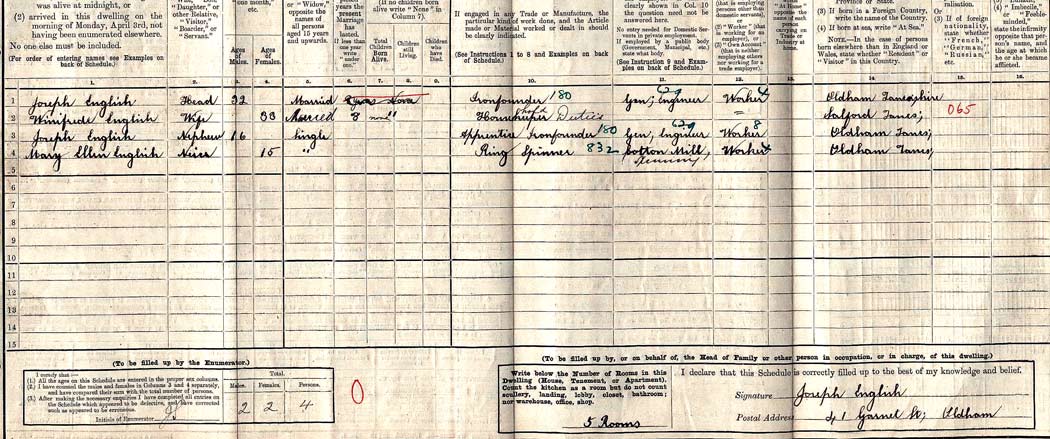 was alive at midnight, or
(2) arrived in this dwelling on the morning of Monday, April 3rd, not having been enumerated elsewhere.
No one else must be included.
(For order of entering names see Examples on back of Schedule.)
Wife,
"Daughter," or other Relative, "Visitor," "Boarder," or "Servant."
one month, etc.
Ages of Males.
Ages of Females.
or "Widow," opposite the names of all persons aged 15 years and upwards.
years the present Marriage has lasted. If less than one year write "under one."
(If no children born alive write "None" in Column 7).
Total Children Born Alive.
Children still Living.
Children who have Died.
If engaged in any Trade or Manufacture, the particular kind of work done, and the Article made or Material worked or dealt in should be clearly indicated.
(See Instructions 1 to 8 and Examples on back of Schedule.)
clearly shown in Col. 10 the question need not be answered here.
No entry needed for Domestic Servants in private employment. If employed by a public body (Government, Municipal, etc.) state what body.
(See Instruction 9 and Examples on back of Schedule.)
(that is employing persons other than domestic servants), or
(2) "Worker" (that is working for an employer), or
(3) "Own Account" (that is neither employing others nor working for a trade employer).
"At Home" opposite the name of each person carrying on Trade or Industry at home.
Province or State.
(3) If born in a Foreign Country, write the name of the Country.
(4) If born at sea, write "At Sea."
NOTE.—In the case of persons born elsewhere than in England or Wales, state whether "Resident" or "Visitor" in this Country.
(3) If of foreign nationality, state whether "French," "German," "Russian," etc.
(4) "Imbecile," or "Feeble-minded," state the infirmity opposite that person's name, and the age at which he or she became afflicted.
1. 2. 3. 4. 5. 6. 7. 8. 9. 10. 11. 12. 13. 14. 15. 16.
1 Joseph English Head 32 Married Ironfounder 180 Gen; Engineer Worker Oldham Lancashire
2 Winifrede English Wife 33 Married 8 none Duties Salford Lancs; 065
3 Joseph English Nephew 16 Single Apprentice Ironfounder 180 Gen; Engineer Worker Oldham Lancs;
4 Mary Ellen English Neice 15 " Ring Spinner 832 Cotton Mill, Worker Oldham Lancs;
5
6
7
8
9
10
11
12
13
14
15
(To be filled up by the Enumerator.)
I certify that:—
(1.) All the ages on this Schedule are entered in the proper sex columns.
(2.) I have counted the males and females in Columns 3 and 4 separately, and have compared their sum with the total number of persons.
(3.) After making the necessary enquiries I have completed all entries on the Schedule which appeared to be defective, and have corrected such as appeared to be erroneous.
Initials of Enumerator
Total.
Males. Females. Persons.
2 2 4
0
(To be filled up by, or on behalf of, the Head of Family or other person in occupation, or in charge, of this dwelling.)
Write below the Number of Rooms in this Dwelling (House, Tenement, or Apartment). Count the kitchen as a room but do not count scullery, landing, lobby, closet, bathroom; nor warehouse, office, shop.
5 Rooms
I declare that this Schedule is correctly filled up to the best of my knowledge and belief.
Signature Joseph English
Postal Address 41 Garnet St; Oldham